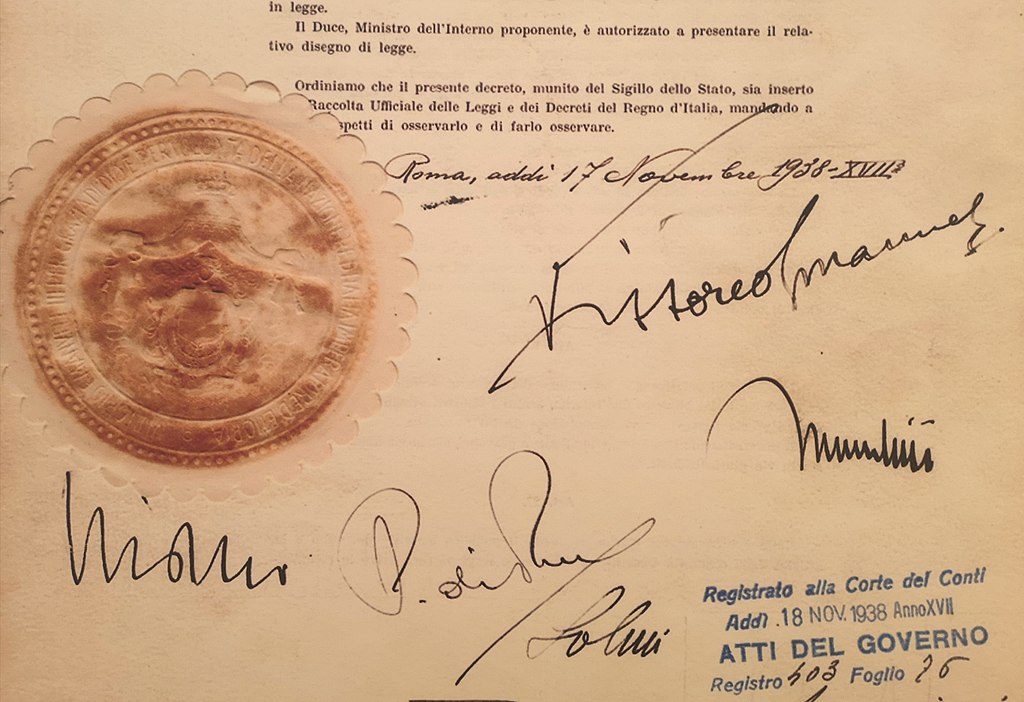 in legge.
Il Duce, Ministro dell'Interno proponente, è autorizzato a presentare il rela-
tivo disegno di legge.
Ordiniamo che il presente decreto, munito del Sigillo dello Stato, sia inserto
Raccolta Ufficiale delle Leggi e dei Decreti del Regno d'Italia, mandando a
spetti di osservarlo e di farlo osservare.
Roma, addì 17 Novembre 1938-XVIIª
Vittorio Emanuele
Mussolini
Ciano
P. di Revel
Solmi
Registrato alla Corte dei Conti
Addì .18 NOV. 1938 AnnoXVII
ATTI DEL GOVERNO
Registro 403 Foglio 76